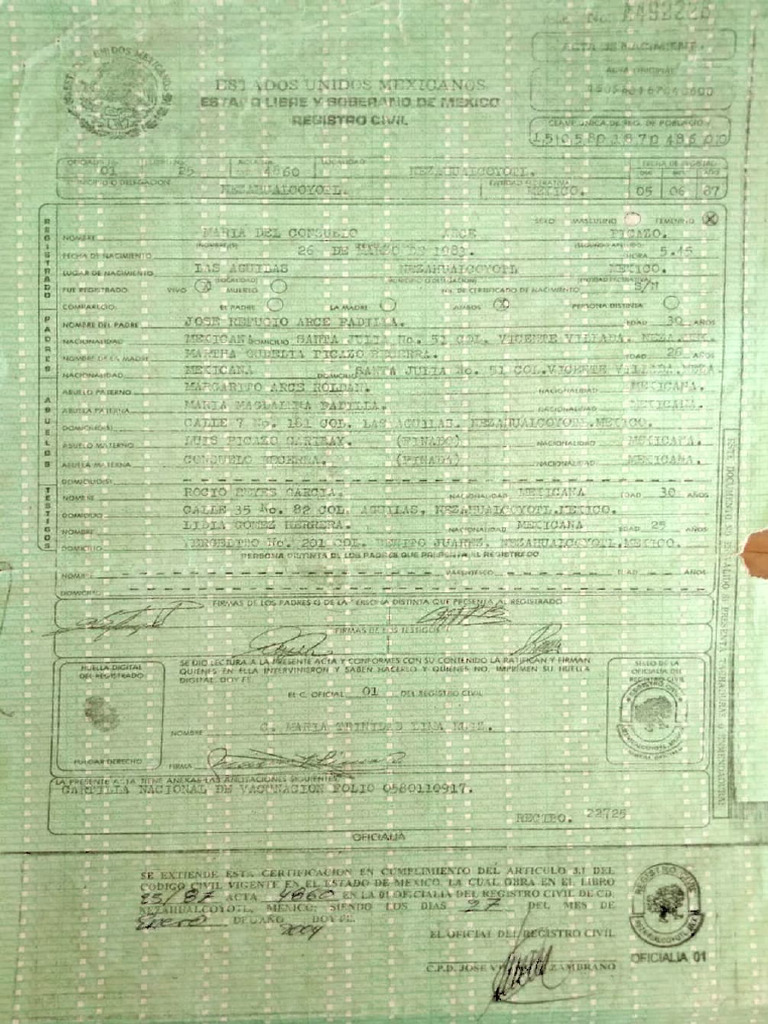 ACTA DE NACIMIENTO
ESTADOS UNIDOS MEXICANOS
ESTADO LIBRE Y SOBERANO DE MEXICO
REGISTRO CIVIL
OFICIALIA No. 01 LIBRO No. 25 ACTA No. 4860 LOCALIDAD NEZAHUALCOYOTL.
MUNICIPIO O DELEGACION NEZAHUALCOYOTL. ENTIDAD FEDERATIVA MEXICO. 05 06 87
REGISTRADO
SEXO: MASCULINO FEMENINO
NOMBRE MARIA DEL CONSUELO ARCE PICAZO.
FECHA DE NACIMIENTO 26 DE MARZO DE 1983. HORA 5.45
LUGAR DE NACIMIENTO LAS AGUILAS NEZAHUALCOYOTL MEXICO.
FUE REGISTRADO VIVO MUERTO No. DE CERTIFICADO DE NACIMIENTO S/N
COMPARECIO: EL PADRE LA MADRE AMBOS PERSONA DISTINTA
PADRES
NOMBRE DEL PADRE JOSE REFUGIO ARCE PADILLA. EDAD 30 AÑOS
NACIONALIDAD MEXICANA DOMICILIO SANTA JULIA No. 51 COL. VICENTE VILLADA. NEZA.MEX.
NOMBRE DE LA MADRE MARTHA OUDELIA PICAZO BECERRA. EDAD 26 AÑOS
NACIONALIDAD MEXICANA DOMICILIO SANTA JULIA No. 51 COL.VICENTE VILLADA.NEZA.
ABUELOS
ABUELO PATERNO MARGARITO ARCE ROLDAN. NACIONALIDAD MEXICANA.
ABUELA PATERNA MARIA MAGDALENA PADILLA. NACIONALIDAD MEXICANA.
DOMICILIO(S) CALLE 7 No. 161 COL. LAS AGUILAS. NEZAHUALCOYOTL.MEXICO.
ABUELO MATERNO LUIS PICAZO GARIBAY. (FINADO) NACIONALIDAD MEXICANA.
ABUELA MATERNA CONSUELO BECERRA. (FINADA) NACIONALIDAD MEXICANA.
DOMICILIO(S)
TESTIGOS
NOMBRE ROCIO REYES GARCIA. NACIONALIDAD MEXICANA EDAD 30 AÑOS
DOMICILIO CALLE 35 No. 82 COL. AGUILAS, NEZAHUALCOYOTL.MEXICO.
NOMBRE LIDIA GOMEZ HERRERA. NACIONALIDAD MEXICANA EDAD 25 AÑOS
DOMICILIO No. 201 COL. BENITO JUAREZ. NEZAHUALCOYOTL.MEXICO.
PERSONA DISTINTA DE LOS PADRES QUE PRESENTA AL REGISTRADO
NOMBRE PARENTESCO EDAD AÑOS
DOMICILIO
FIRMAS DE LOS PADRES O DE LA PERSONA DISTINTA QUE PRESENTA AL REGISTRADO
FIRMAS DE LOS TESTIGOS
HUELLA DIGITAL DEL REGISTRADO
SE DIO LECTURA A LA PRESENTE ACTA Y CONFORMES CON SU CONTENIDO LA RATIFICAN Y FIRMAN
QUIENES EN ELLA INTERVINIERON Y SABEN HACERLO Y QUIENES NO, IMPRIMEN SU HUELLA
DIGITAL. DOY FE.
EL C. OFICIAL 01 DEL REGISTRO CIVIL
SELLO DE LA OFICIALIA DEL REGISTRO CIVIL
NOMBRE C. MARIA TRINIDAD LIMA
PULGAR DERECHO FIRMA
LA PRESENTE ACTA TIENE ANEXAS LAS ANOTACIONES SIGUIENTES
CARTILLA NACIONAL DE VACUNACION FOLIO 0580110917.
RECIBO. 22725
OFICIALIA
SE EXTIENDE ESTA CERTIFICACION EN CUMPLIMIENTO DEL ARTICULO 3.1 DEL
CODIGO CIVIL VIGENTE EN EL ESTADO DE MEXICO, LA CUAL OBRA EN EL LIBRO
25/87 ACTA 4860 EN LA 01 OFICIALIA DEL REGISTRO CIVIL DE CD.
NEZAHUALCOYOTL, MEXICO; SIENDO LOS DIAS 27 DEL MES DE
Enero DEL AÑO 2004 DOY FE.
EL OFICIAL DEL REGISTRO CIVIL
C.P.D. JOSE ZAMBRANO
REGISTRO CIVIL
NEZAHUALCOYOTL
OFICIALIA 01